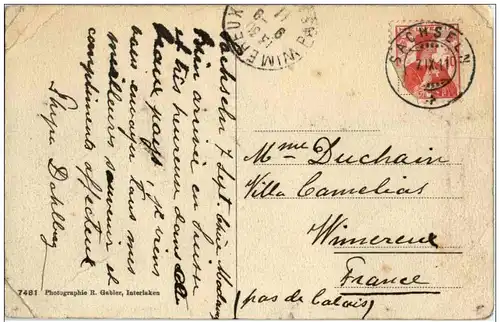 Sachseln 7 Sept. chère Madame
Bien arrivée en Suisse
et très heureuse dans ce
beau pays, je viens
vous envoyer tous mes
meilleurs souvenirs et
compliments affectueux
Dahlberg
WIMEREUX
SACHSELN
7. IX. 11
10
Mme Duchain
Villa Camelias
Wimereux
France
(pas de Calais)
7461 Photographie R. Gabler, Interlaken